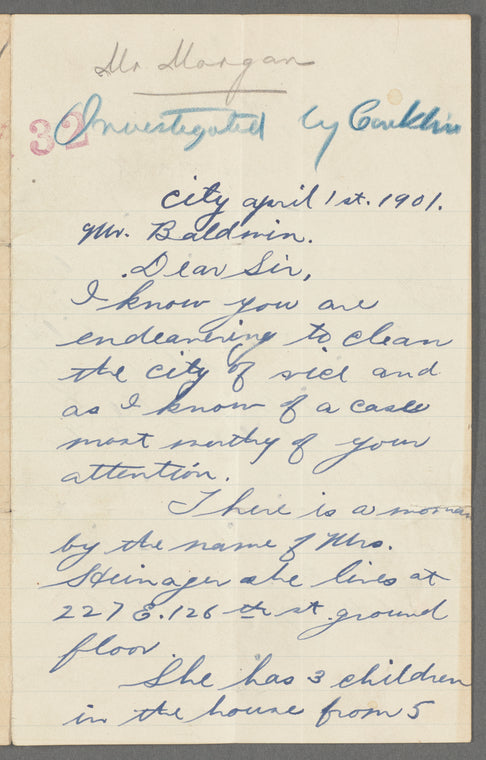 Mr Morgan
32
Investigated by Conklin
City april 1st. 1901.
Mr. Baldwin.
Dear Sir,
I know you are
endeavering to clean
the city of vice and
as I know of a case
most worthy of your
attention.
There is a woman
by the name of Mrs.
she lives at
227 E. 126 th st. ground
floor.
She has 3 children
in the house from 5